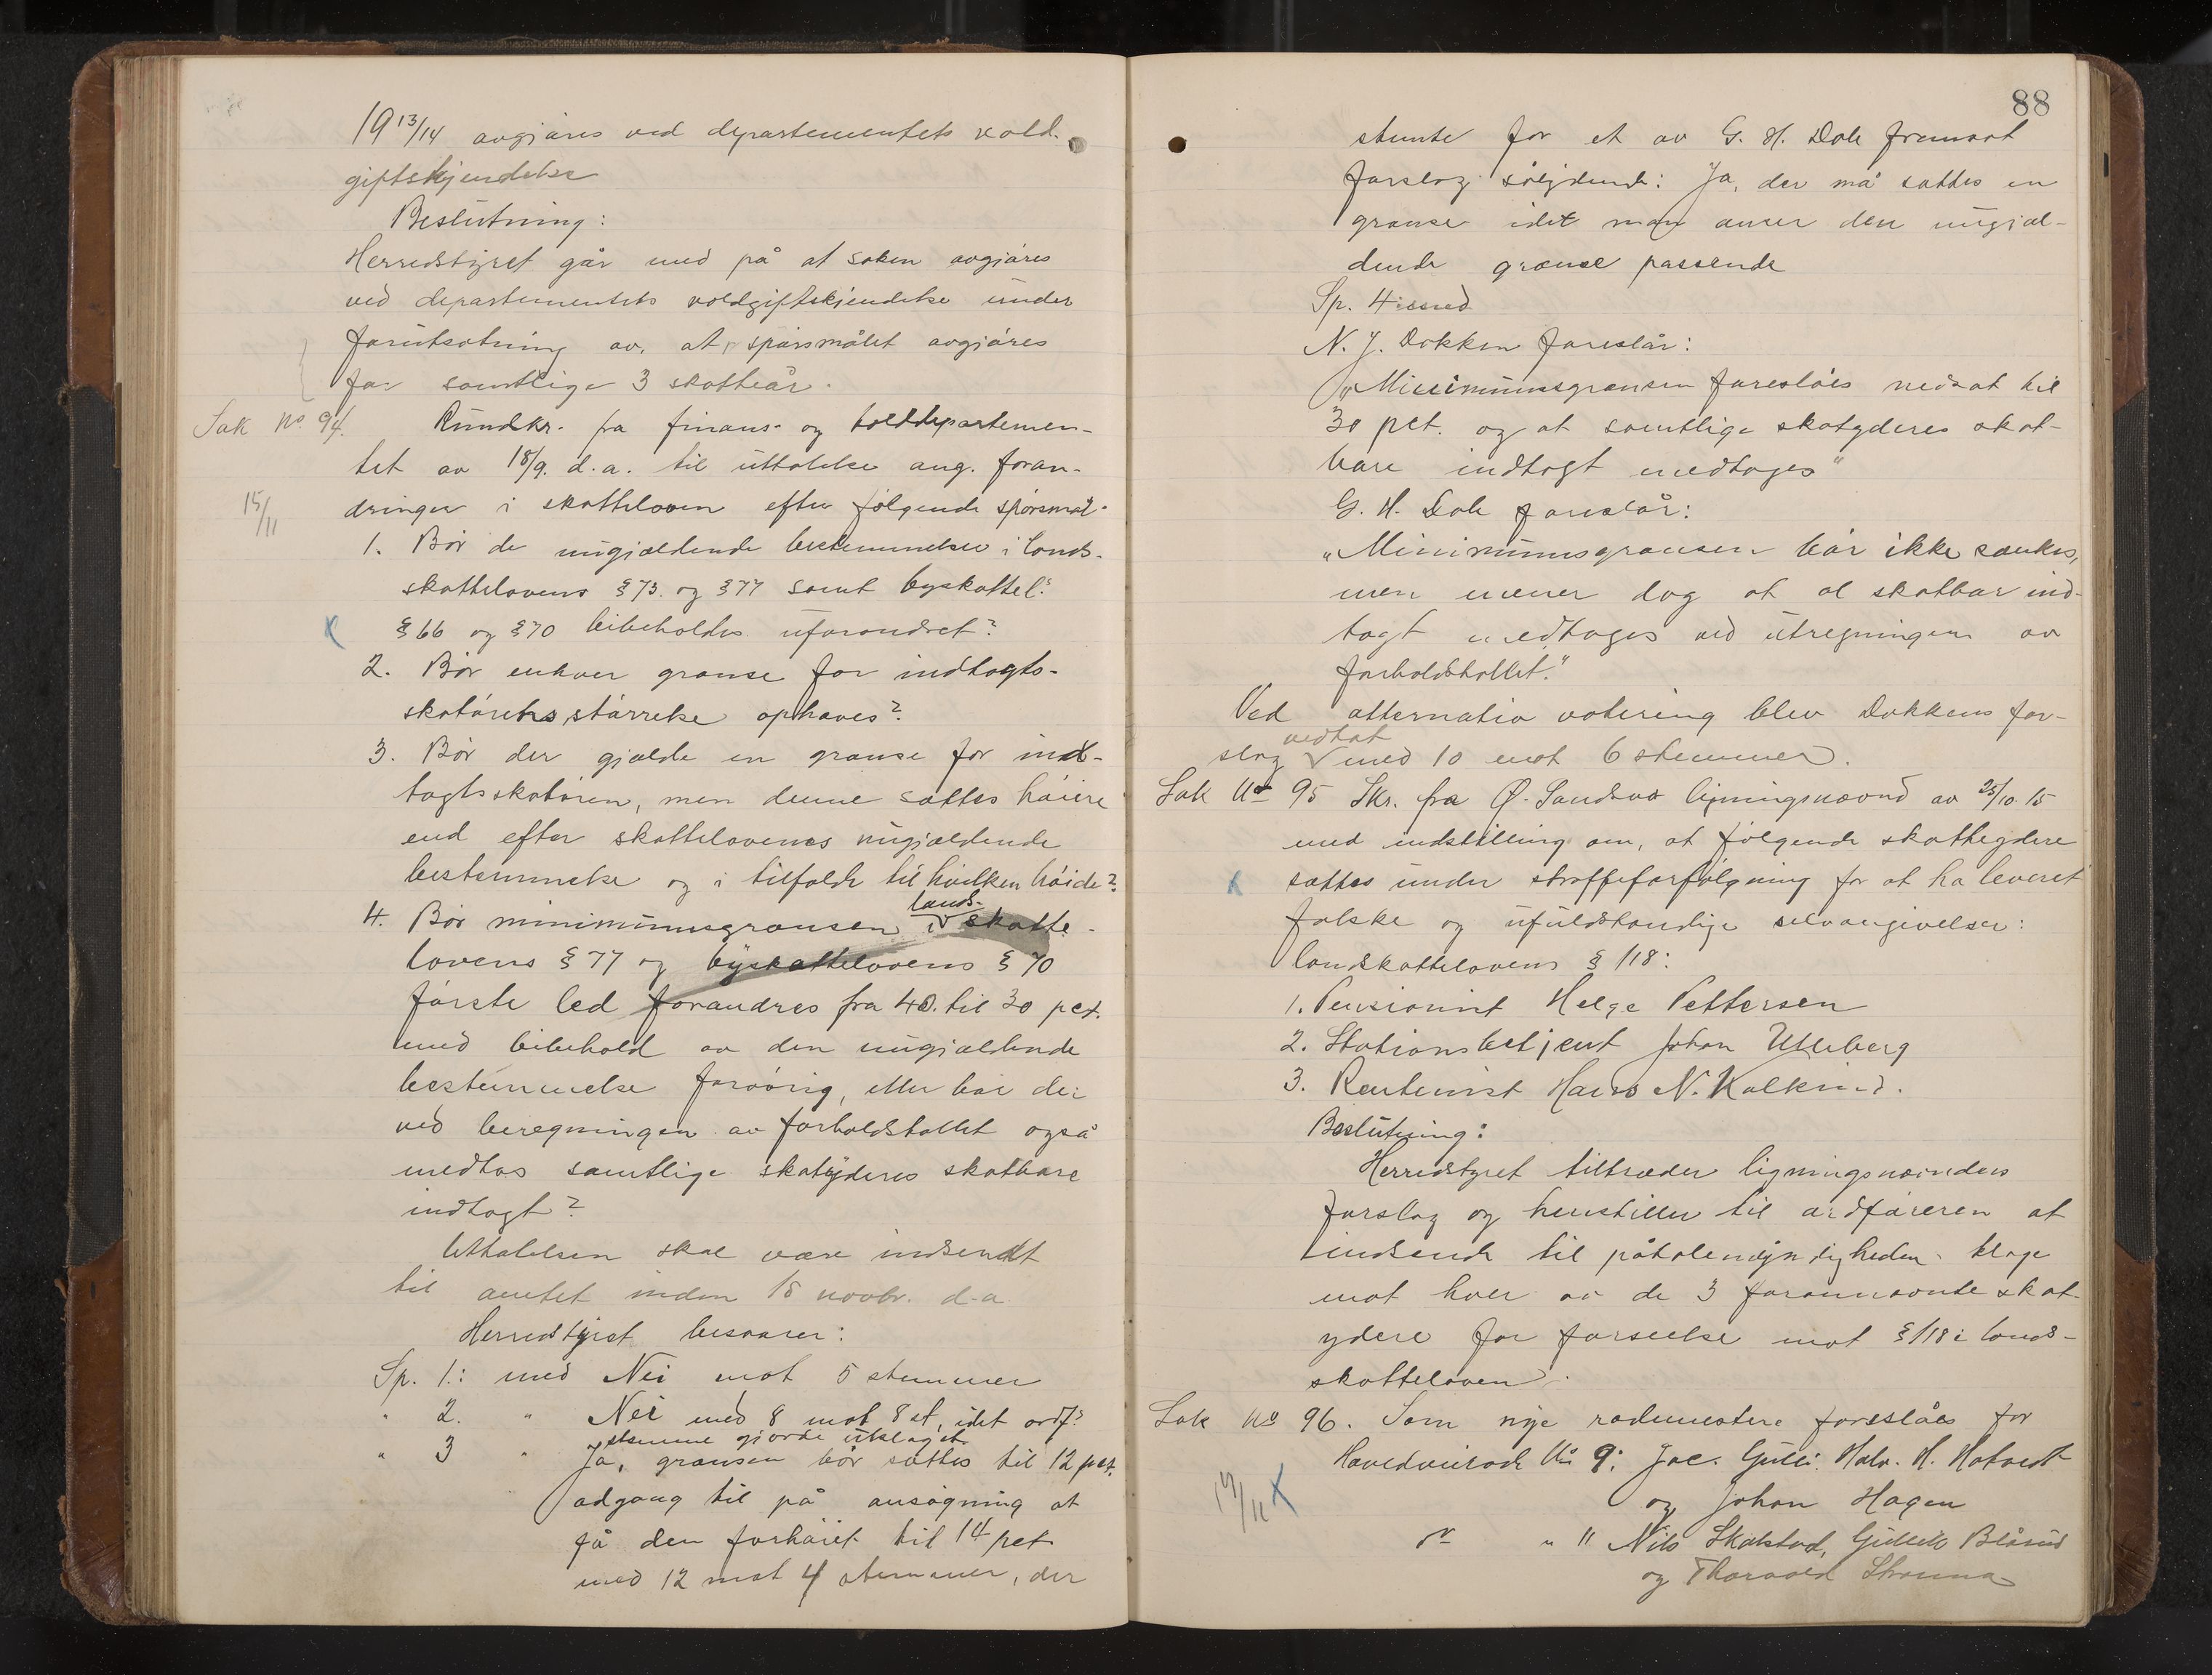 19 13/14 avgjøres ved departementets vold-
giftskjendelse
Beslutning:
Herredstyret går med på at saken avgjøres
ved departementets voldgiftskjendelse under
forutsætning av, at spørsmålet avgjøres
for samtlige 3 skatteår.
Sak No. 94. Rundskr. fra finans- og tolddepartemen-
tet av 18/9. d.a. til uttalelse ang. foran-
15/11 dringer i skatteloven efter følgende spørsmål.
1. Bør de nugjældende bestemmelser i lands-
skattelovens § 73. og § 77 samt byskattel.s
§ 66 og § 70 bibeholdes uforandret?
2. Bør enhver grænse for indtægts-
skatørets størrelse ophæves?
3. Bør der gjælde en grænse for ind-
tægtsskatøren, men denne sættes høiere
end efter skattelovenes nugjældende
bestemmelse og i tilfælde til hvilken høide?
4. Bør minimumsgrænsen i lands-skatte-
lovens § 77 og byskattelovens § 70
første led forandres fra 40. til 30 pct.
med bibehold av den nugjældende
bestemmelse forøvrig, eller bør der
ved beregningen av forholdstallet også
medtas samtlige skatyderes skatbare
indtægt?
Uttalelsen skal være indsendt
til amtet inden 15 novbr. d.a.
Herredstyret besvarer:
Sp. 1.: med Nei mot 5 stemmer
" 2. " Nei med 8 mot 8 st, idet ordf.s
stemme gjorde utslaget.
" 3 " Ja, grænsen bør sættes til 12 pct.
adgang til på ansøgning at
få den forhøiet til 14 pct
med 12 mot 4 stemmer, der
88
stemte for et av G. H. Dale fremsat
forslag sålydende: Ja, der må sættes en
grænse idet man anser den nugjæl-
dende grænse passende
Sp. 4
N. J. Dokken foreslår:
"Minimumsgrænsen foreslåes nedsat til
30 pct. og at samtlige skatyderes skat-
bare indtægt medtages"
G. H. Dale foreslår:
"Minimumsgrænsen bør ikke sænkes,
men mener dog at al skatbar ind-
tægt medtages ved utregningen av
forholdstallet."
Ved alternativ votering blev Dokkens for-
slag vedtat med 10 mot 6 stemmer.
Sak No 95 Skr. fra Ø. Sandsvær ligningsnævnd av 25/10. 15
med indstilling om, at følgende skatteydere
sættes under straffeforfølgning for at ha leveret
falske og ufuldstændige selvangivelser:
landskattelovens § 118:
1. Pensionist Helge Pettersen
2. Stationsbetjent Johan Ulleberg
3. Rentenist Hans N. Kalkrud.
Beslutning:
Herredstyret tiltræder ligningsnævndens
forslag og henstiller til ordføreren at
indsende til påtalemyndigheden klage
mot hver av de 3 forannævnte skat-
ydere for forseelse mot § 118 i lands-
skatteloven.
Sak No 96. Som nye rodemestere foreslåes for
Hovedveirode No 9: Jac. Gulli. Halv. H. Hatvedt
17/11 og Johan Hagen
" 11 Nils Skalstad, Gullik Blåsud
og Thorvald